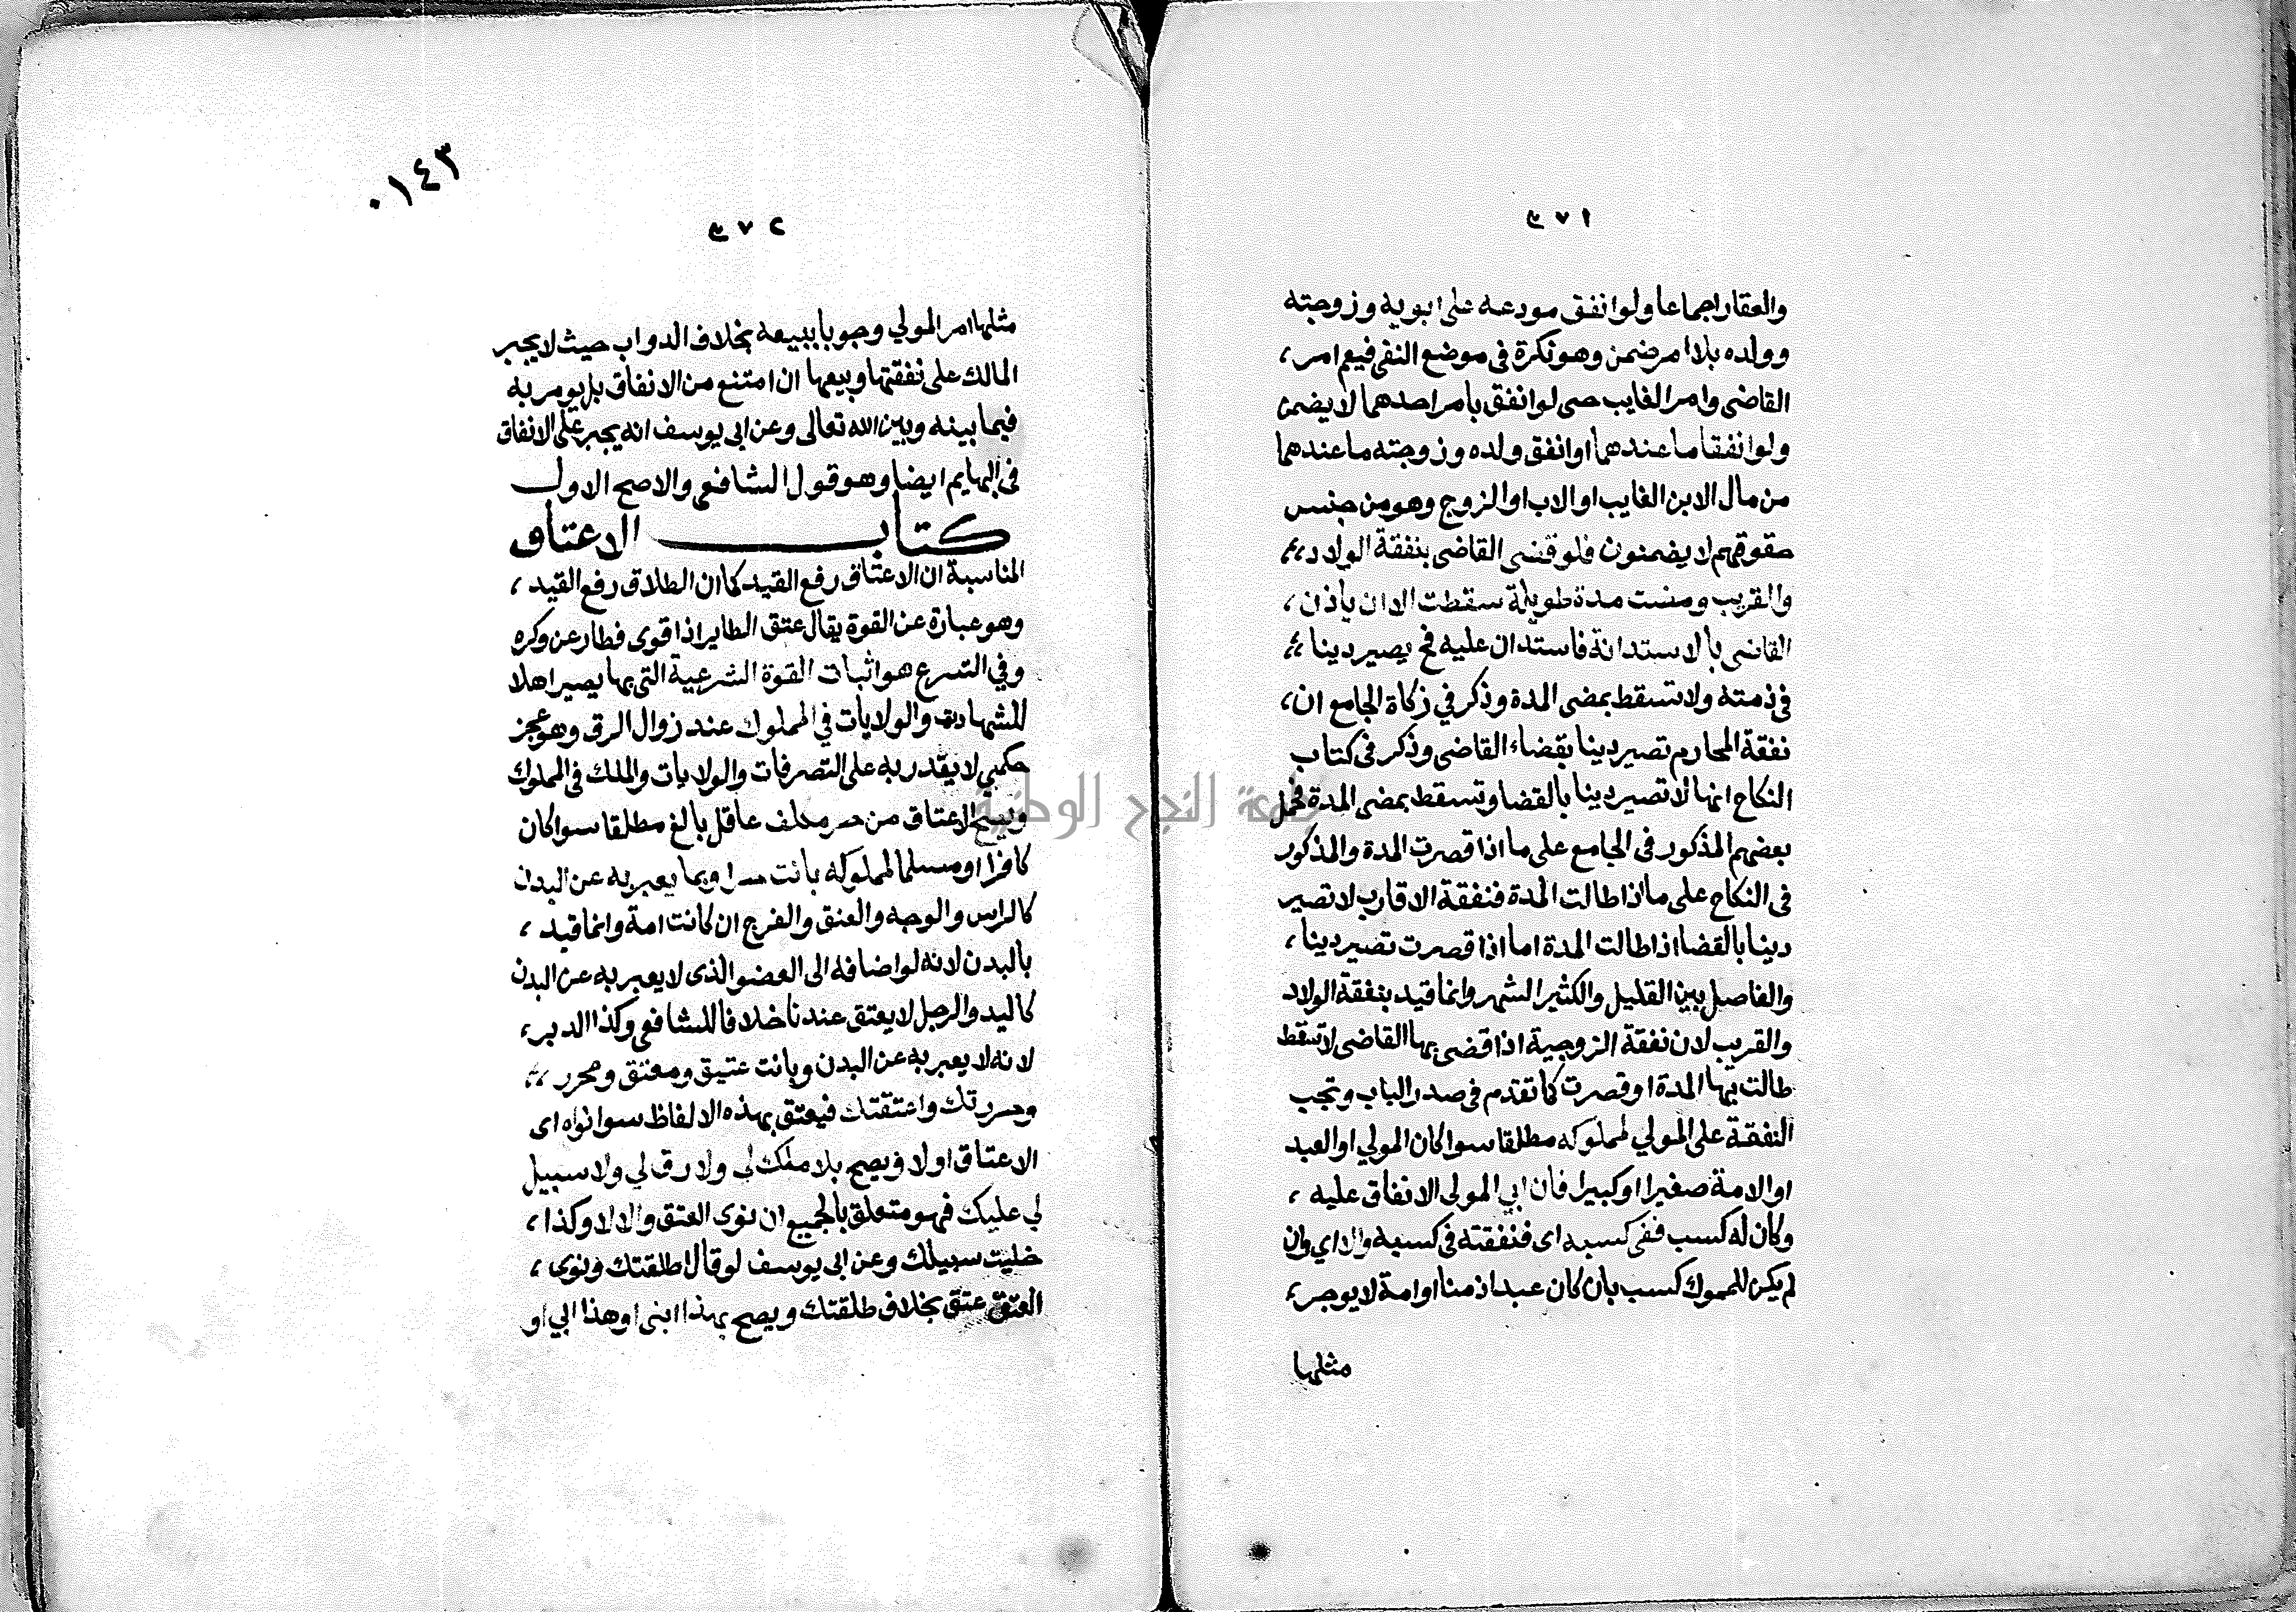 ٣٧١
والعقار اجماعا ولو انفق مودعه على ابويه وزوجته
وولده بلا امر ضمن وهو نكرة فى موضع النفى فيعم امر،
القاضى وامر الغايب حتى لو انفق بامر احدهما لا يضمن
ولو انفقا ما عندهما او انفق ولده وزوجته ما عندهما
من مال الابن الغايب او الاب او الزوج وهو من جنس
حقوقهم لا يضمنون فلو قضى القاضى بنفقة الولاد
والقريب ومضت مدة طويلة سقطت الا ان ياذن،
القاضى بالاستدانة فاستدان عليه فح يصير دينا
فى ذمته ولا تسقط بمضى المدة وذكر في زكاة الجامع ان،
نفقة المحارم تصير دينا بقضاء القاضى وذكر فى كتاب
النكاح انها لا تصير دينا بالقضا وتسقط بمضى المدة فحمل
بعضهم المذكور فى الجامع على ما اذا قصرت المدة والمذكور
فى النكاح على ما اذا طالت المدة فنفقة الاقارب لا تصير
دينا بالقضا اذا طالت المدة اما اذا قصرت تصير دينا،
والفاصل بين القليل والكثير الشهر وانما قيد بنفقة الولاد
والقريب لان نفقة الزوجية اذا قضى بها القاضى لا تسقط
طالت بها المدة او قصرت كما تقدم فى صدر الباب وتجب
النفقة على المولي لمملوكه مطلقا سوا كان المولي او العبد
او الامة صغيرا او كبيرا فان ابي المولى الانفاق عليه،
وكان له كسب ففى كسبه اى فنفقته فى كسبه والا اي وان
لم يكن للمموك كسب بان كان عبدا زمنا او امة لا يوجر،
مثلها
٠١٤٣
٣٧٢
مثلها امر المولي وجوبا ببيعه بخلاف الدواب حيث لا يجبر
المالك على نفقتها وبيعها ان امتنع من الانفاق بل يومر به
فيما بينه وبين الله تعالى وعن ابى يوسف انه يجبر على الانفاق
فى البهايم ايضا وهو قول الشافعى والاصح الاول
كتاب الاعتاق
المناسبة ان الاعتاق رفع القيد كما ان الطلاق رفع القيد،
وهو عبارة عن القوة يقال عتق الطاير اذا قوى فطار عن وكره
وفي الشرع هو اثبات القوة الشرعية التى بها يصير اهلا
للشهادة والولايات في المملوك عند زوال الرق وهو عجز
حكمي لا يقدر به على التصرفات والولايات والملك فى المملوك
ويصح الاعتاق من حر مكلف عاقل بالغ مطلقا سوا كان
كافرا او مسلما لمملوكه بانت حر او بما يعبر به عن البدن
كالراس والوجه والعنق والفرج ان كانت امة وانما قيد،
بالبدن لانه لو اضافه الى العضو الذى لا يعبر به عن البدن
كاليد والرجل لا يعتق عندنا خلافا للشافعى وكذا الدبر،
لانه لا يعبر به عن البدن وبانت عتيق ومعتق ومحرر
وحررتك واعتقتك فيعتق بهذه الالفاظ سوا نواه اى
الاعتاق او لا ويصح بلا ملك لي ولا رق لي ولا سبيل
لي عليك فهو متعلق بالجميع ان نوى العتق والا لا وكذا،
خليت سبيلك وعن ابى يوسف لو قال اطلقتك ونوى،
العتق عتق بخلاف طلقتك ويصح بهذا ابنى او هذا ابي او
جامعة النجاح الوطنية